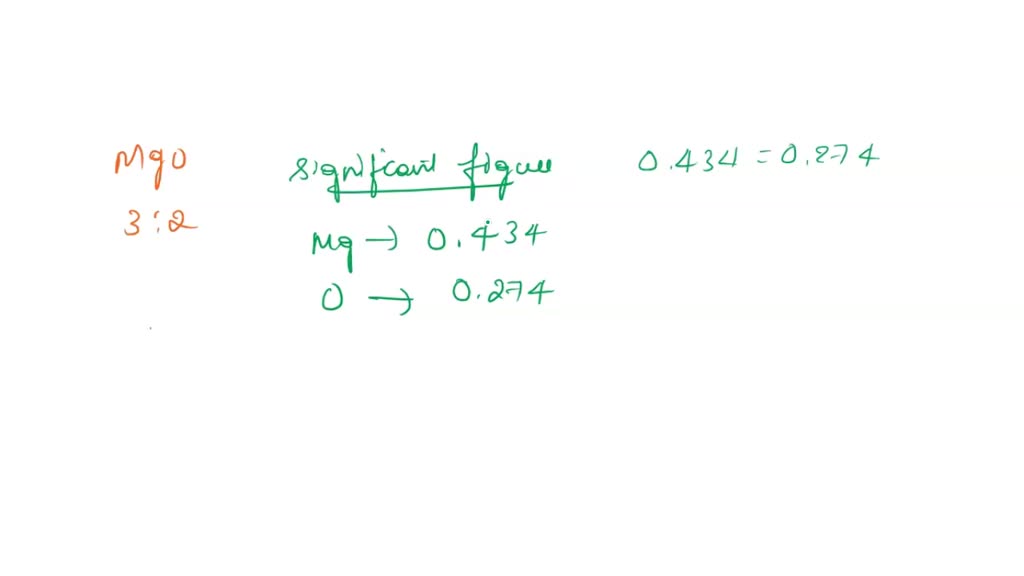 MgO
3:2
significant figure
Mg → 0.434
O → 0.274
0.434 = 0.274